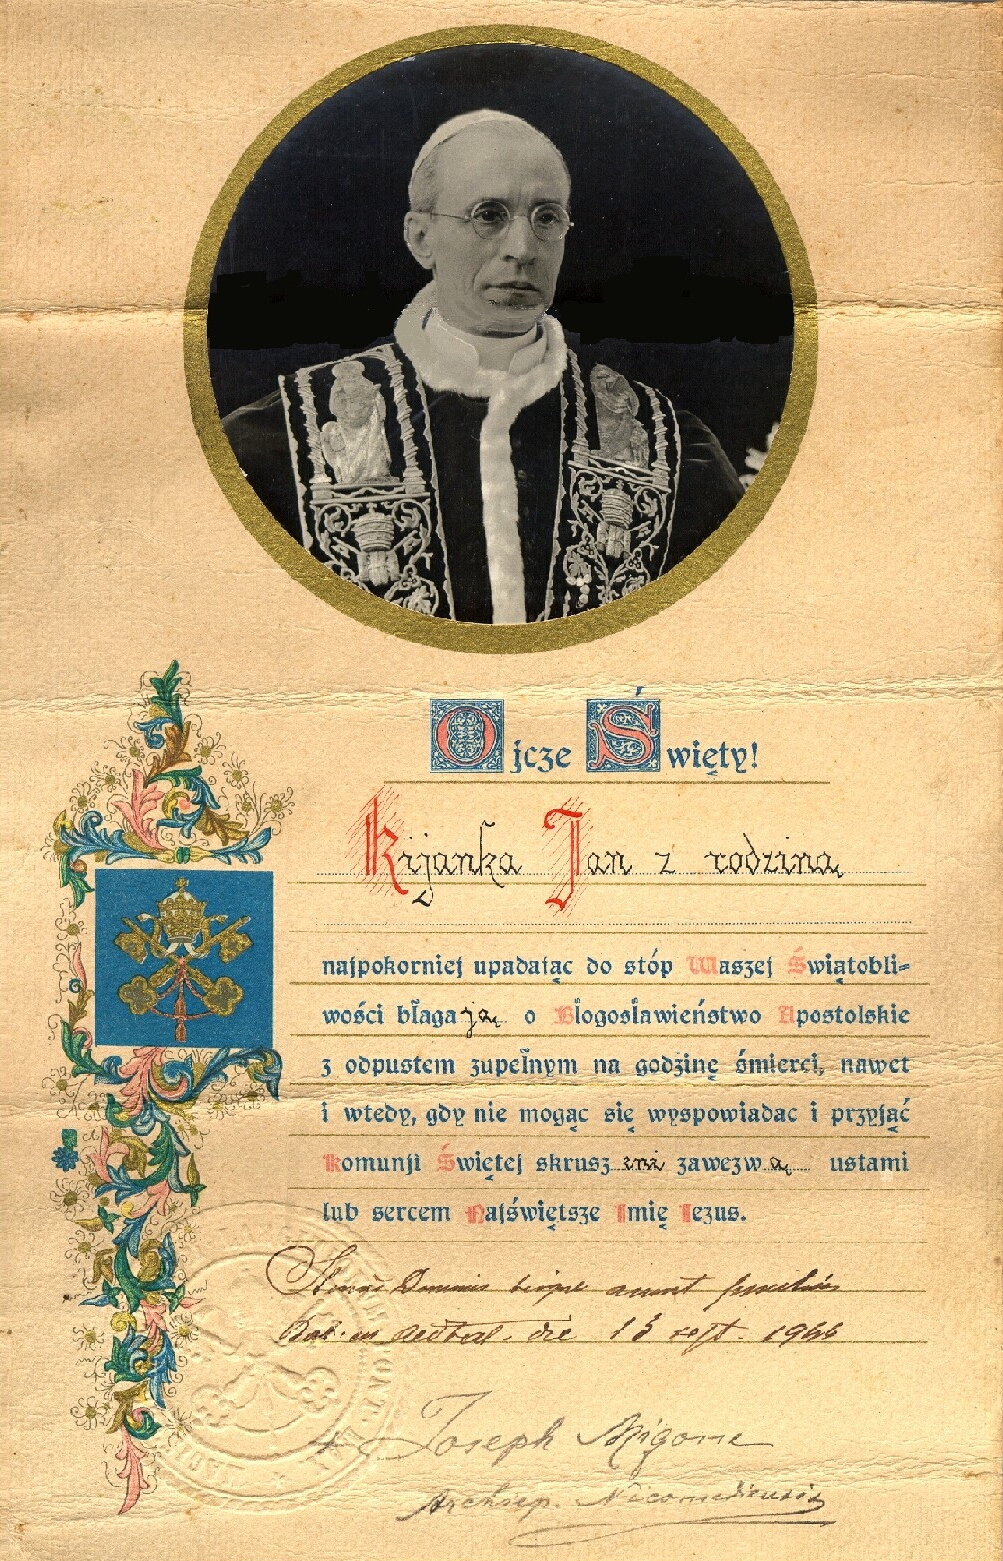 Ojcze Święty!
Kijanka Jan z rodziną
najpokorniej upadając do stóp Waszej Świątobli=
wości błagają o Błogosławieństwo Apostolskie
z odpustem zupełnym na godzinę śmierci, nawet
i wtedy, gdy nie mogąc się wyspowiadac i przyjąć
Komunji Świętej skruszeni zawezwą ustami
lub sercem Najświętsze Imię Jezus.
Dominus
die sept.
+ Joseph Migone
Archiep. Nicomediensis